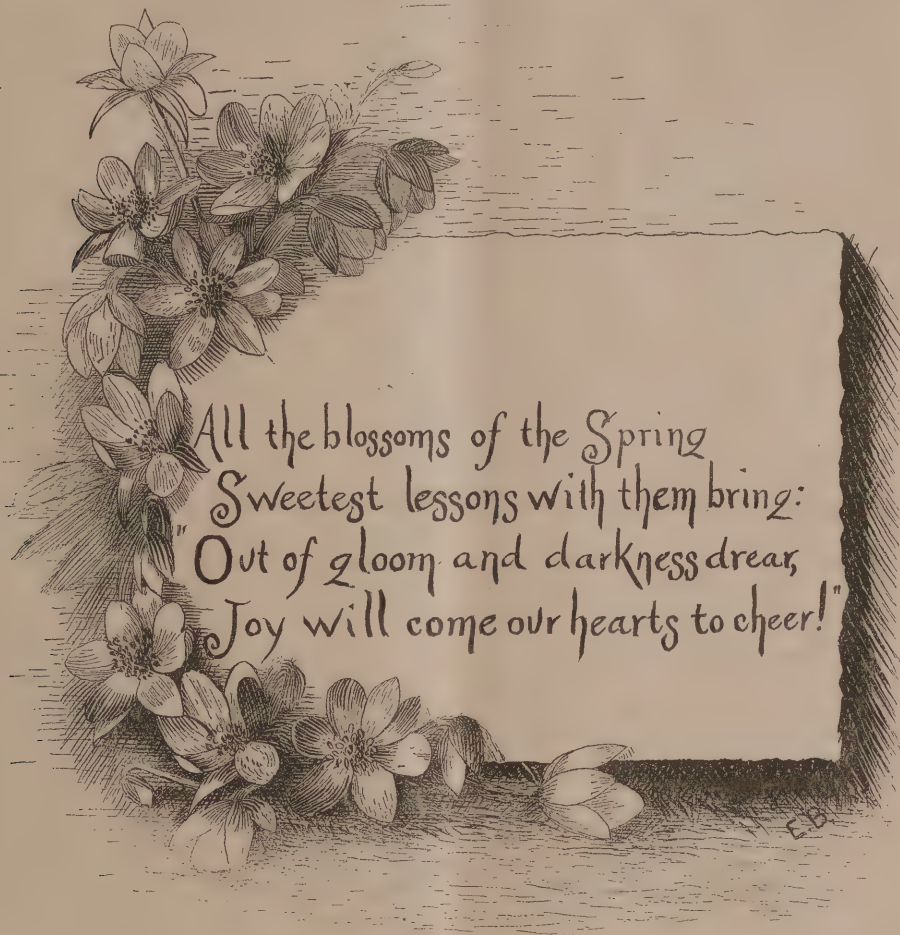 All the blossoms of the Spring
Sweetest lessons with them bring:
"Out of gloom and darkness drear,
Joy will come our hearts to cheer!"
E.B.